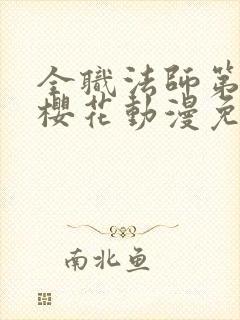 全職法師第
櫻花動漫免
南北鱼